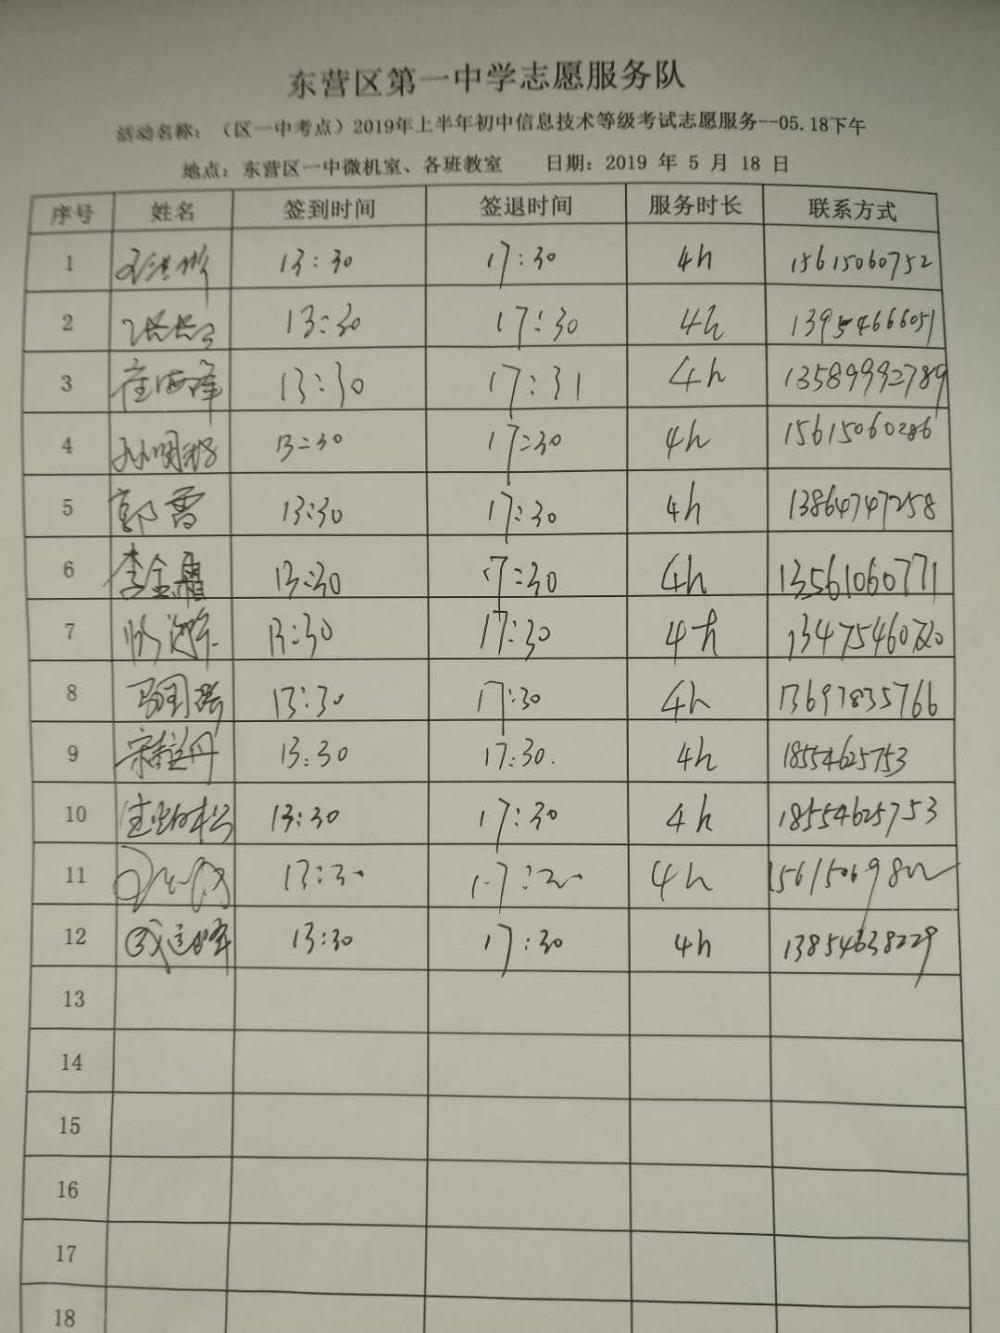 东营区第一中学志愿服务队
活动名称：（区一中考点）2019年上半年初中信息技术等级考试志愿服务--05.18下午
地点：东营区一中微机室、各班教室 日期：2019 年 5 月 18 日
序号 姓名 签到时间 签退时间 服务时长 联系方式
1 13:30 17:30 4h 15615060752
2 13:30 17:30 4h 13954666051
3 崔海峰 13:30 17:31 4h 13589992789
4 13:30 17:30 4h 15615060286
5 郭雷 13:30 17:30 4h 13864747258
6 李金霜 13:30 17:30 4h 13561060771
7 13:30 17:30 4h
8 13:30 17:30 4h 13697835766
9 13:30 17:30. 4h 18554625753
10 13:30 17:30 4h 18554625753
11 13:30 4h
12 13:30 17:30 4h 13854638229
13
14
15
16
17
18